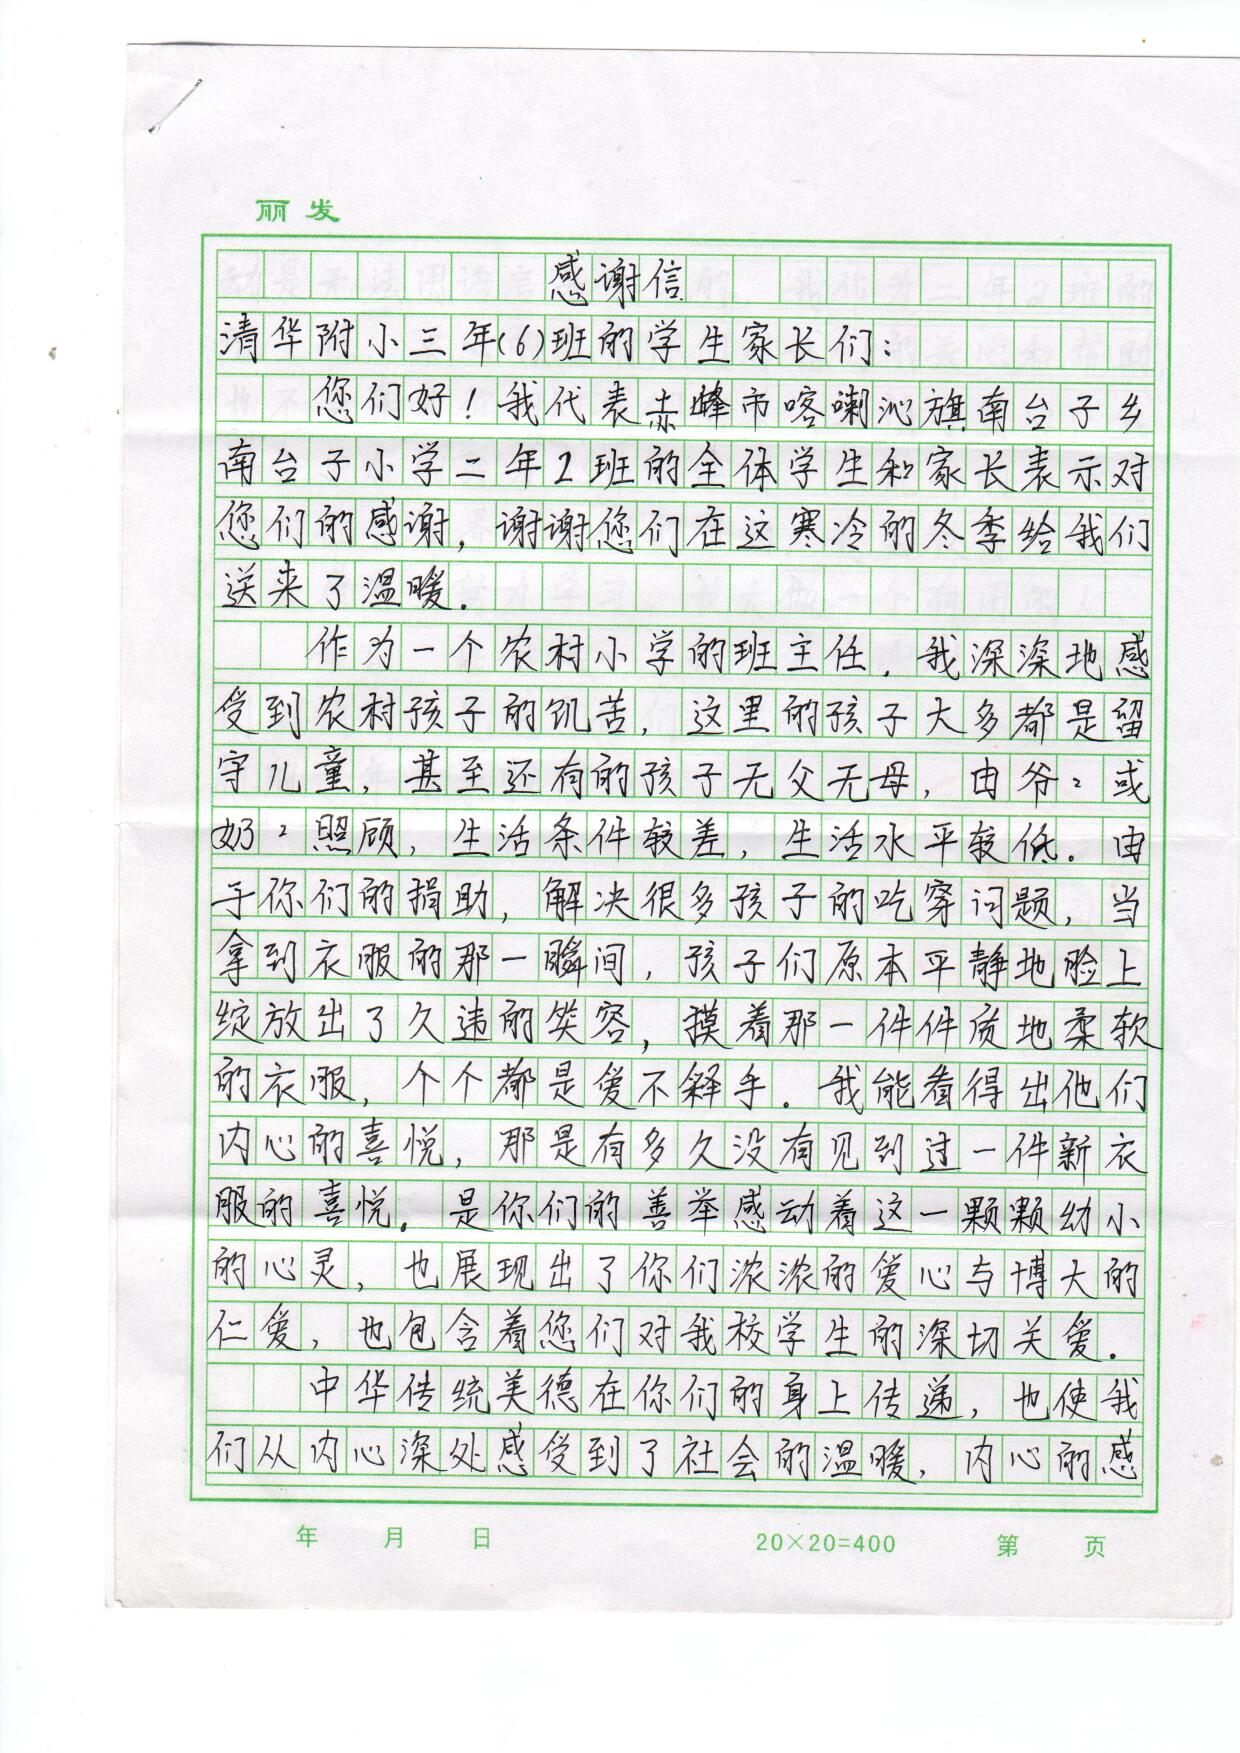 丽发
感谢信
清华附小三年(6)班的学生家长们:
您们好!我代表赤峰市喀喇沁旗南台子乡
南台子小学二年2班的全体学生和家长表示对
您们的感谢,谢谢您们在这寒冷的冬季给我们
送来了温暖.
作为一个农村小学的班主任.我深深地感
受到农村孩子的饥苦,这里的孩子大多都是留
守儿童,甚至还有的孩子无父无母,由爷々或
奶々照顾,生活条件较差,生活水平较低.由
于你们的捐助,解决很多孩子的吃穿问题,当
拿到衣服的那一瞬间,孩子们原本平静地脸上
绽放出了久违的笑容,摸着那一件件质地柔软
的衣服,个个都是爱不释手.我能看得出他们
内心的喜悦,那是有多久没有见到过一件新衣
服的喜悦.是你们的善举感动着这一颗颗幼小
的心灵,也展现出了你们浓浓的爱心与博大的
仁爱,也包含着您们对我校学生的深切关爱.
中华传统美德在你们的身上传递,也使我
们从内心深处感受到了社会的温暖,内心的感
年 月 日 20×20=400 第 页